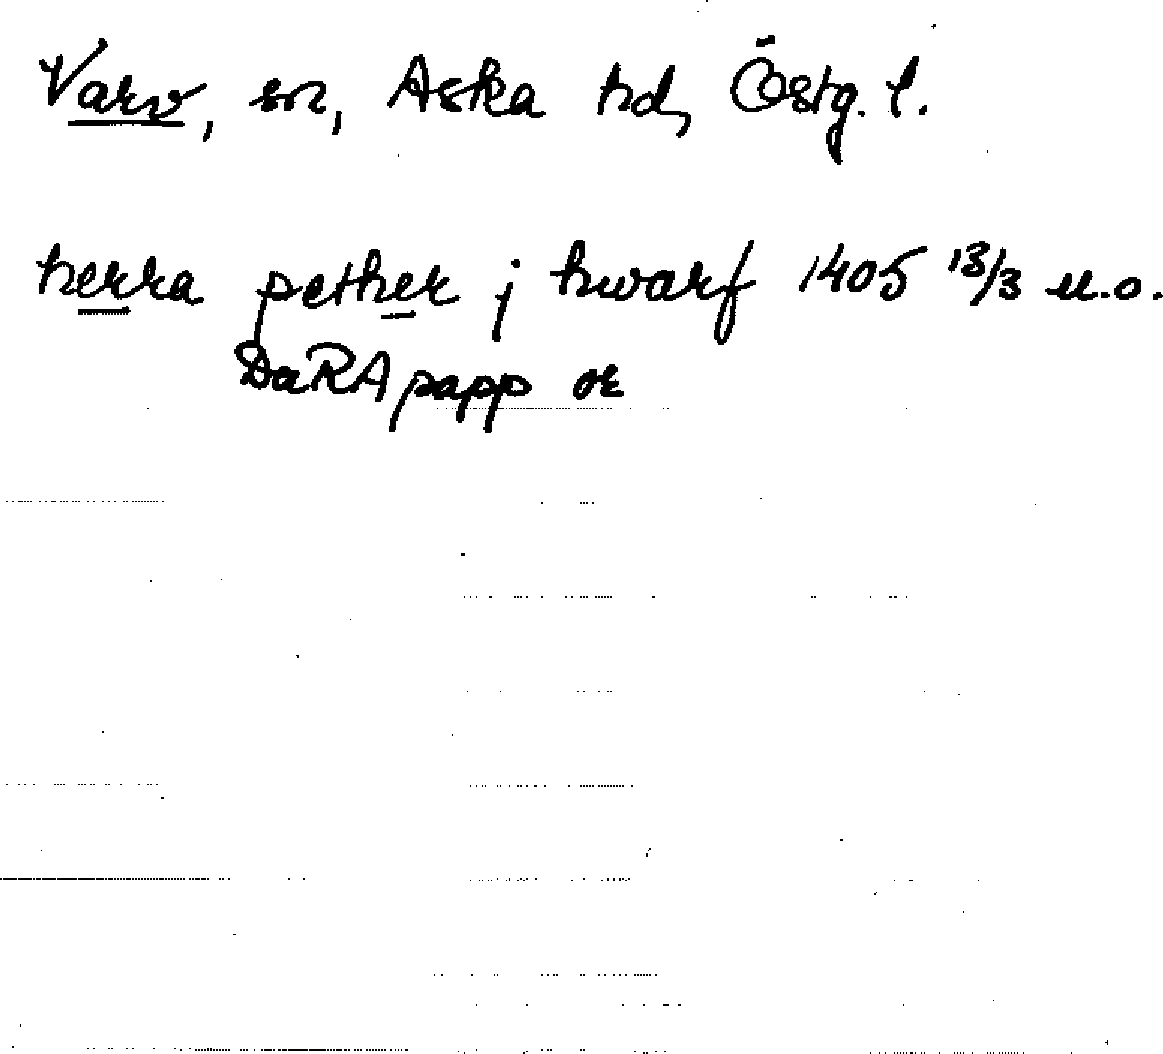 Varv, sn, Aska hd, Östg. l.
herra pether j hwarf 1405 13/3 u.o.
DaRA papp or